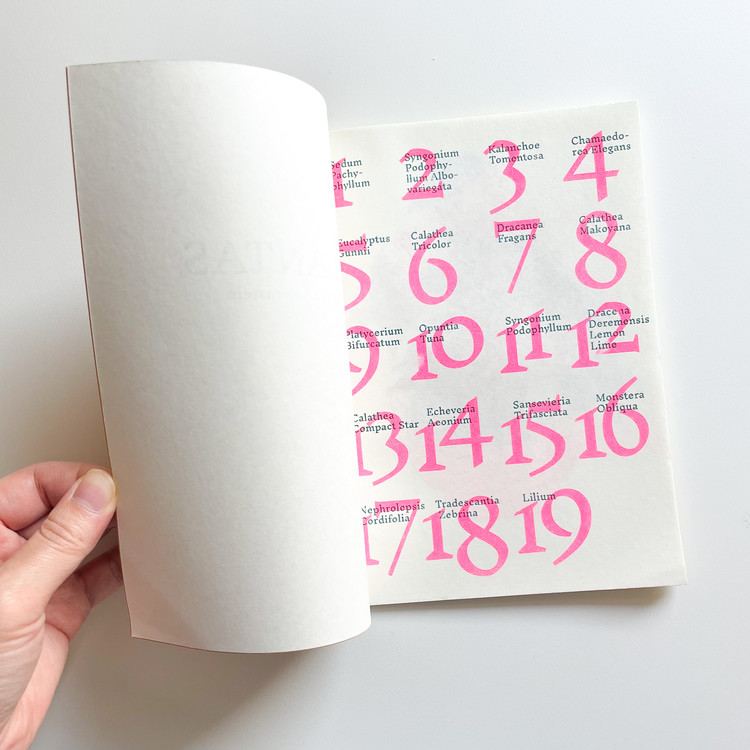 1
Sedum
Pachy-
phyllum
2
Syngonium
Podophy-
llum Albo-
variegata
3
Kalanchoe
Tomentosa
4
Chamaedo-
rea Elegans
5
Eucalyptus
Gunnii
6
Calathea
Tricolor
7
Dracanea
Fragans
8
Calathea
Makoyana
9
Platycerium
Bifurcatum
10
Opuntia
Tuna
11
Syngonium
Podophyllum
12
Dracena
Deremensis
Lemon
Lime
13
Calathea
Compact Star
14
Echeveria
Aeonium
15
Sansevieria
Trifasciata
16
Monstera
Obliqua
17
Nephrolepsis
Cordifolia
18
Tradescantia
Zebrina
19
Lilium